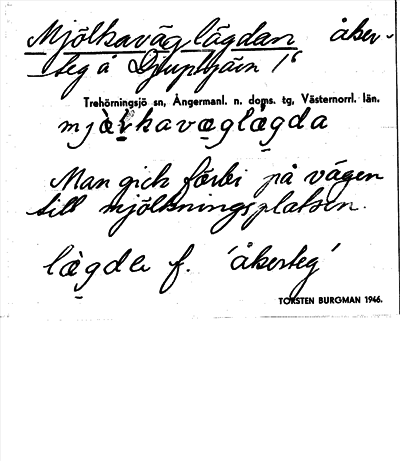 Mjölkaväglägdan åker-
teg å Djuptjärn 1⁶
Trehörningsjö sn, Ångermanl. n. doms. tg, Västernorrl. län.
mjɷ̀ḷkavæglæ̀gda
Man gick förbi på vägen
till mjölkningsplatsen.
læ̀gda f. 'åkerteg'
TORSTEN BURGMAN 1946.